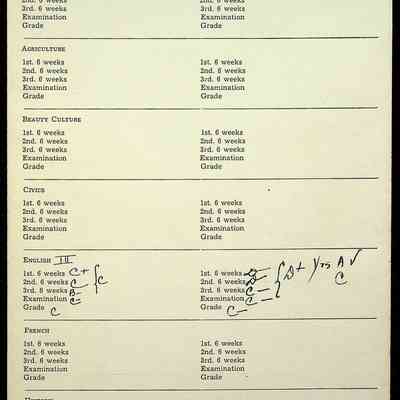 2nd. 6 weeks 2nd. 6 weeks
3rd. 6 weeks 3rd. 6 weeks
Examination Examination
Grade Grade
AGRICULTURE
1st. 6 weeks 1st. 6 weeks
2nd. 6 weeks 2nd. 6 weeks
3rd. 6 weeks 3rd. 6 weeks
Examination Examination
Grade Grade
BEAUTY CULTURE
1st. 6 weeks 1st. 6 weeks
2nd. 6 weeks 2nd. 6 weeks
3rd. 6 weeks 3rd. 6 weeks
Examination Examination
Grade Grade
CIVICS
1st. 6 weeks 1st. 6 weeks
2nd. 6 weeks 2nd. 6 weeks
3rd. 6 weeks 3rd. 6 weeks
Examination Examination
Grade Grade
ENGLISH III
1st. 6 weeks C+ 1st. 6 weeks
2nd. 6 weeks C- C 2nd. 6 weeks D+ Yrs Av
3rd. 6 weeks B- 3rd. 6 weeks C- C
Examination C- Examination C-
Grade C Grade C-
FRENCH
1st. 6 weeks 1st. 6 weeks
2nd. 6 weeks 2nd. 6 weeks
3rd. 6 weeks 3rd. 6 weeks
Examination Examination
Grade Grade